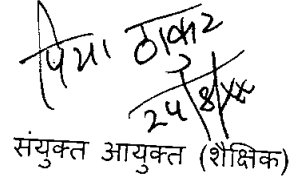 पिया ठाकुर
24/8/xx
संयुक्त आयुक्त (शैक्षिक)